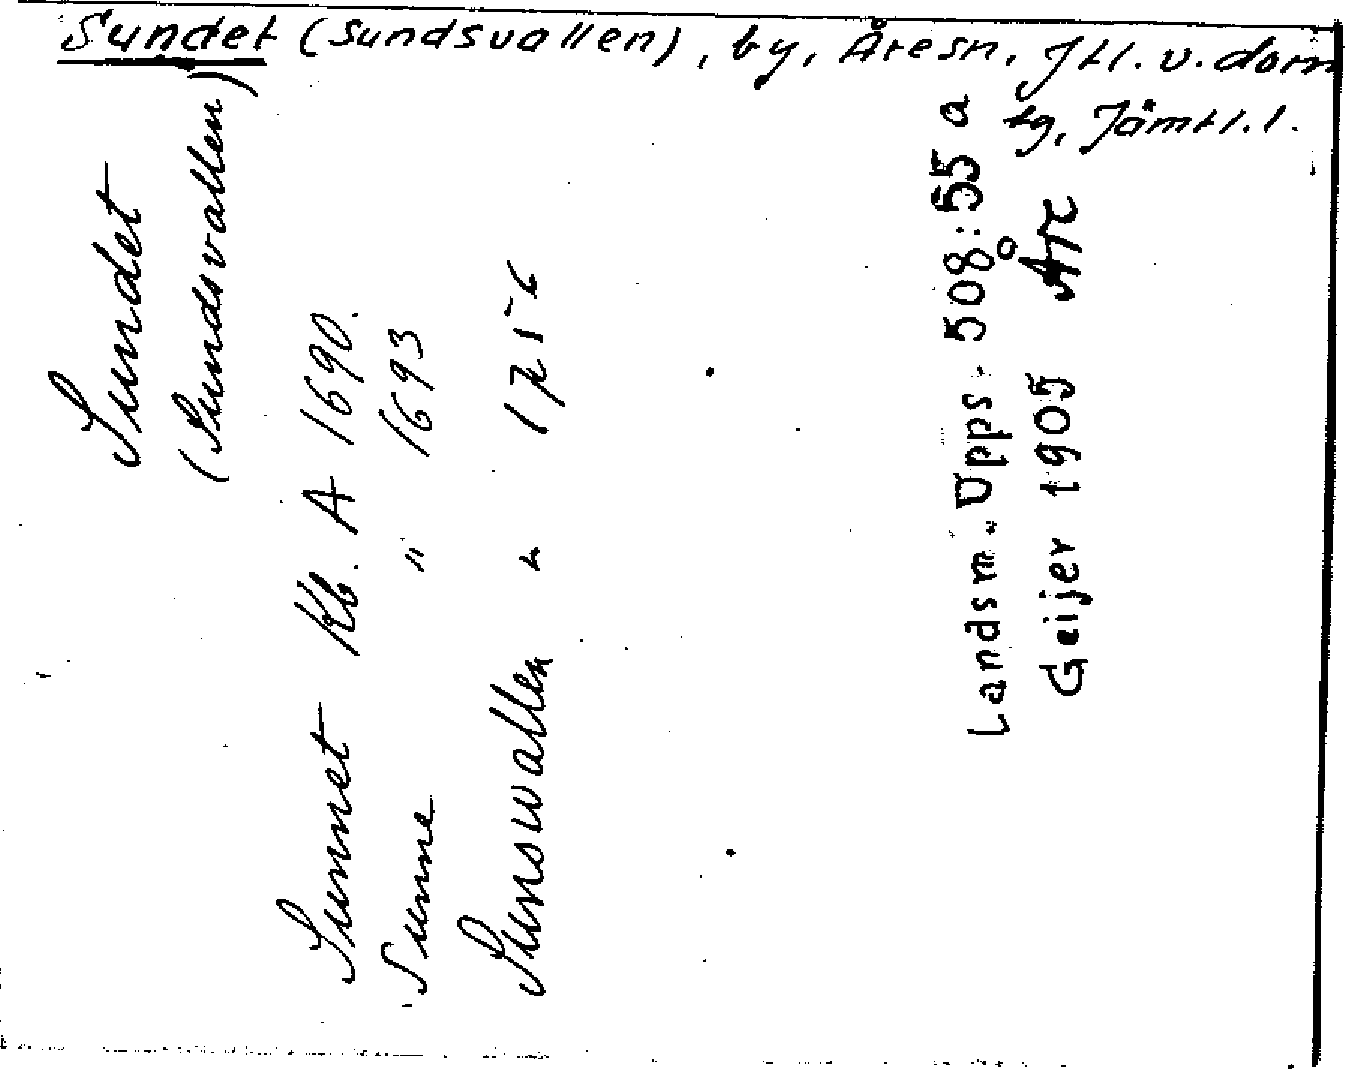 Sundet (Sundsvallen), by, Åresn, Jtl. v. dom
sg, Jämtl.l.
Sundet
(Sundsvallen)
Sunnet Kb. A 1690.
Sunne " 1693
Sunswallen " 1715-6
Landsm. Upps. 508:55 a
Geijer 1905 Åre